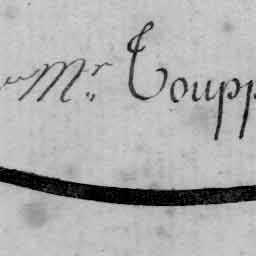 Mr Toupp